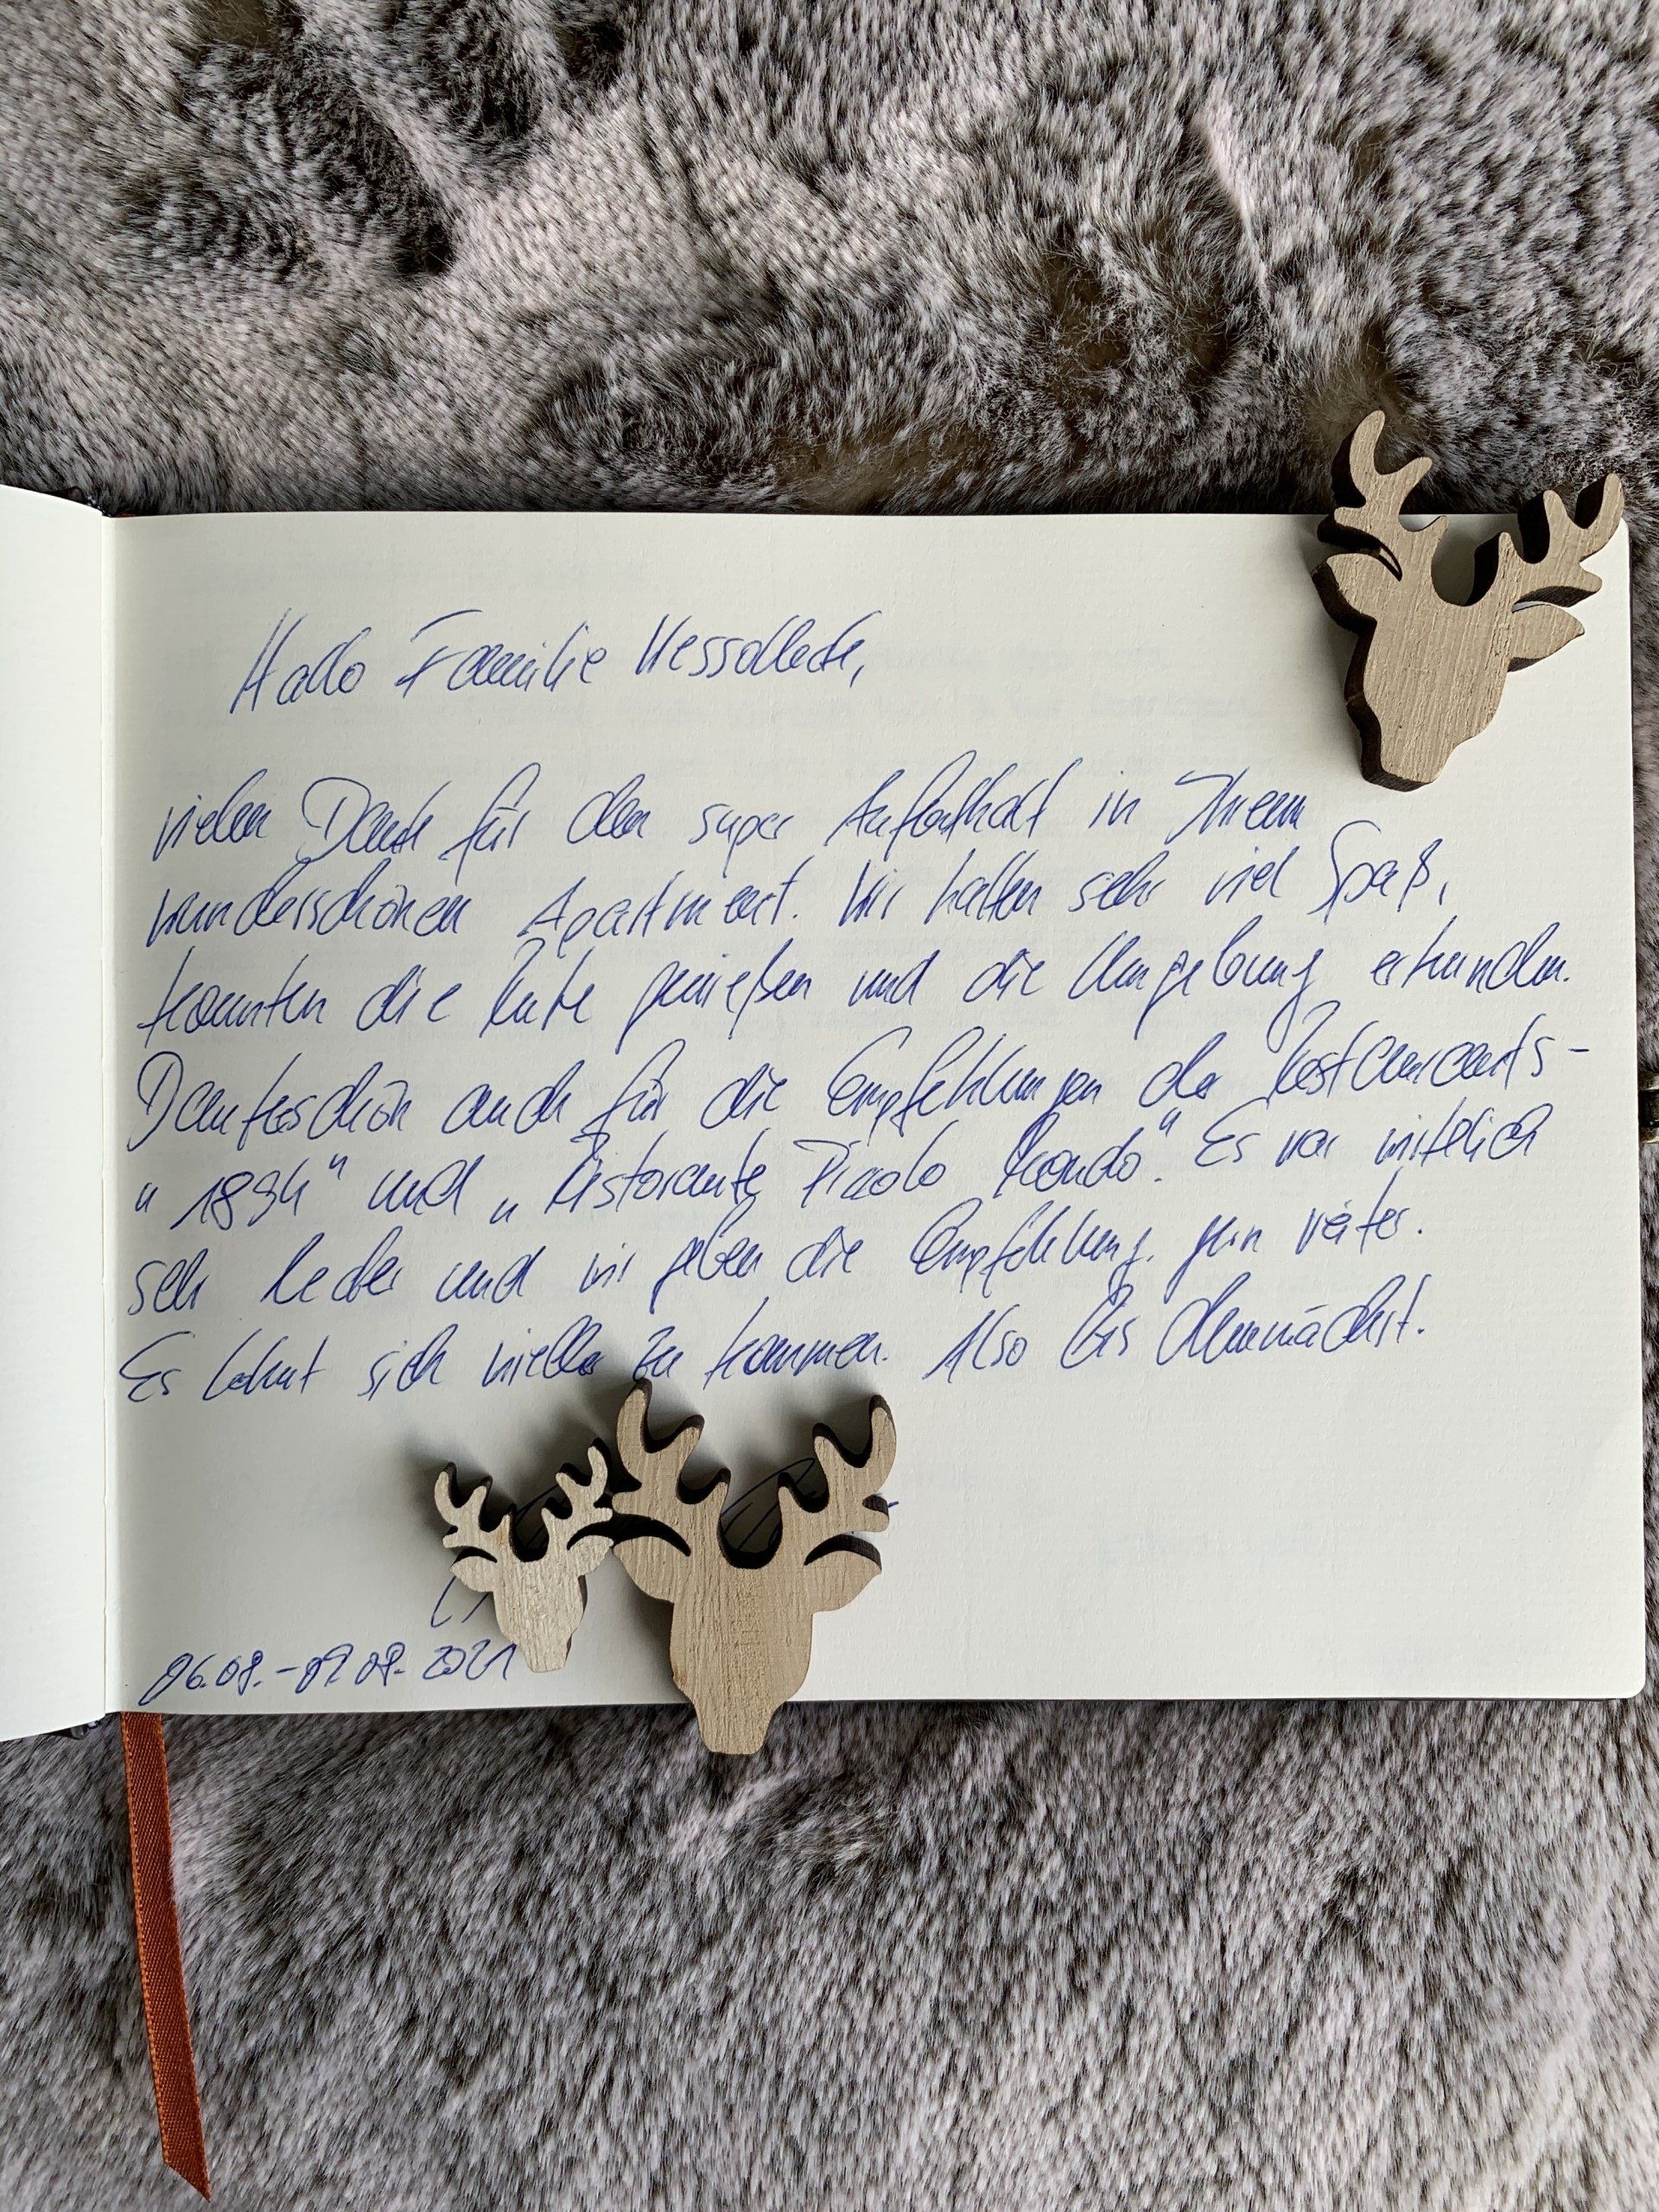 Hallo Familie
vielen Dank für den super Aufenthalt in Ihrem
wunderschönen Apartment. Wir hatten sehr viel Spaß,
konnten die Ruhe genießen und die Umgebung erkunden.
Dankeschön auch für die Empfehlungen der Restaurants-
"1894" und „Ristorante Piccolo Mondo". Es war wirklich
sehr lecker und wir geben die Empfehlung gern weiter.
Es lohnt sich wieder zu kommen. Also bis demnächst.
06.08.-09.08.2021